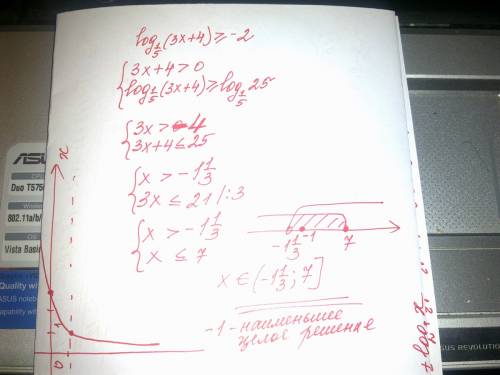 log_{1/5}(3x+4) ≥ -2
{ 3x+4 > 0
{ log_{1/5}(3x+4) ≥ log_{1/5} 25
{ 3x > -4
{ 3x+4 ≤ 25
{ x > -1 1/3
{ 3x ≤ 21 /:3
{ x > -1 1/3
{ x ≤ 7
-1 1/3 -1 7
x ∈ (-1 1/3; 7]
-1 - наименьшее
целое решение
x
1
0
ASUS
Duo T575
802.11a/b/
Vista Basi
Quality wi
ASUS noteb
capability
ASUS REVOLUTION